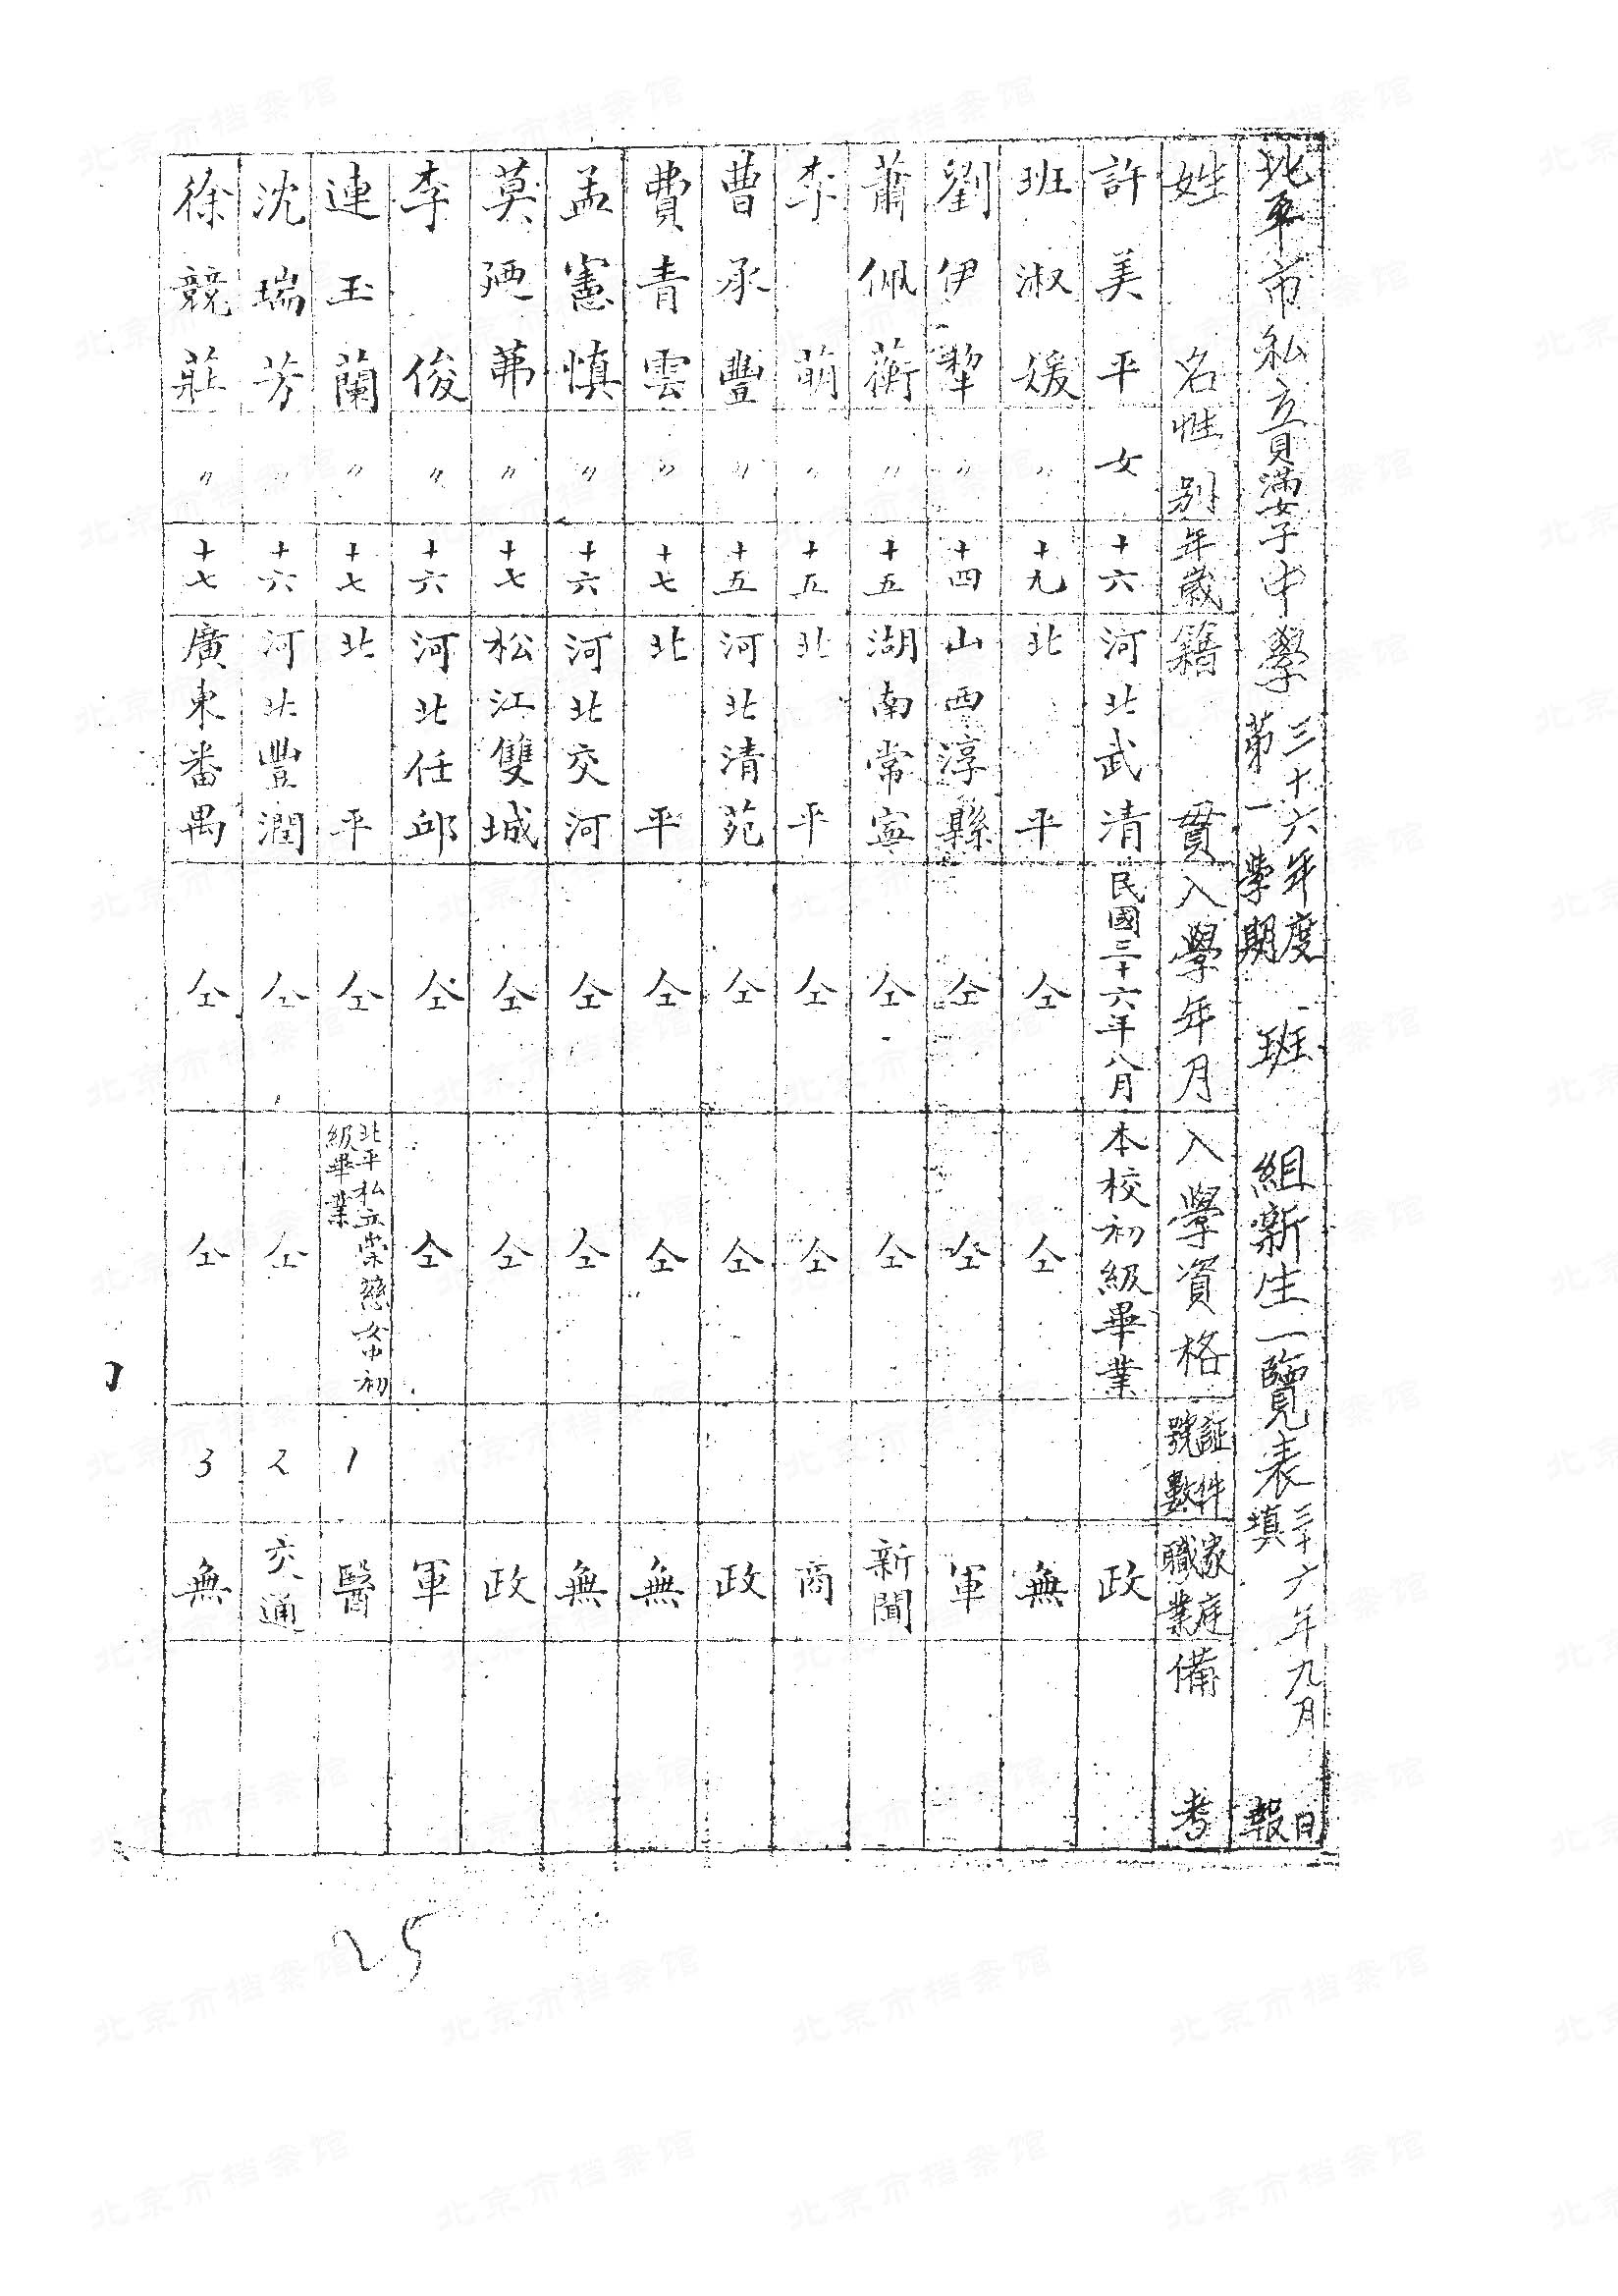 北平市私立貝滿女子中學 三十六年度第一學期 班 組新生一覽表 三十六年九月 日填報
姓名 性別 年歲 籍貫 入學年月 入學資格 証件號數 家庭職業 備考
許美平 女 十六 河北武清 民國三十六年八月 本校初級畢業 政
班淑媛 〃 十九 北平 仝 仝 無
劉伊犂 〃 十四 山西淳縣 仝 仝 軍
蕭佩蘅 〃 十五 湖南常寧 仝 仝 新聞
李萌 〃 十五 北平 仝 仝 商
曹承豐 〃 十五 河北清苑 仝 仝 政
費青雲 〃 十七 北平 仝 仝 無
孟憲慎 〃 十六 河北交河 仝 仝 無
莫 〃 十七 松江雙城 仝 仝 政
李俊 〃 十六 河北任邱 仝 仝 軍
連玉蘭 〃 十七 北平 仝 北平私立崇慈女中初級畢業 1 醫
沈瑞芳 〃 十六 河北豐潤 仝 仝 2 交通
徐競莊 〃 十七 廣東番禺 仝 仝 3 無
25
北京市档案馆